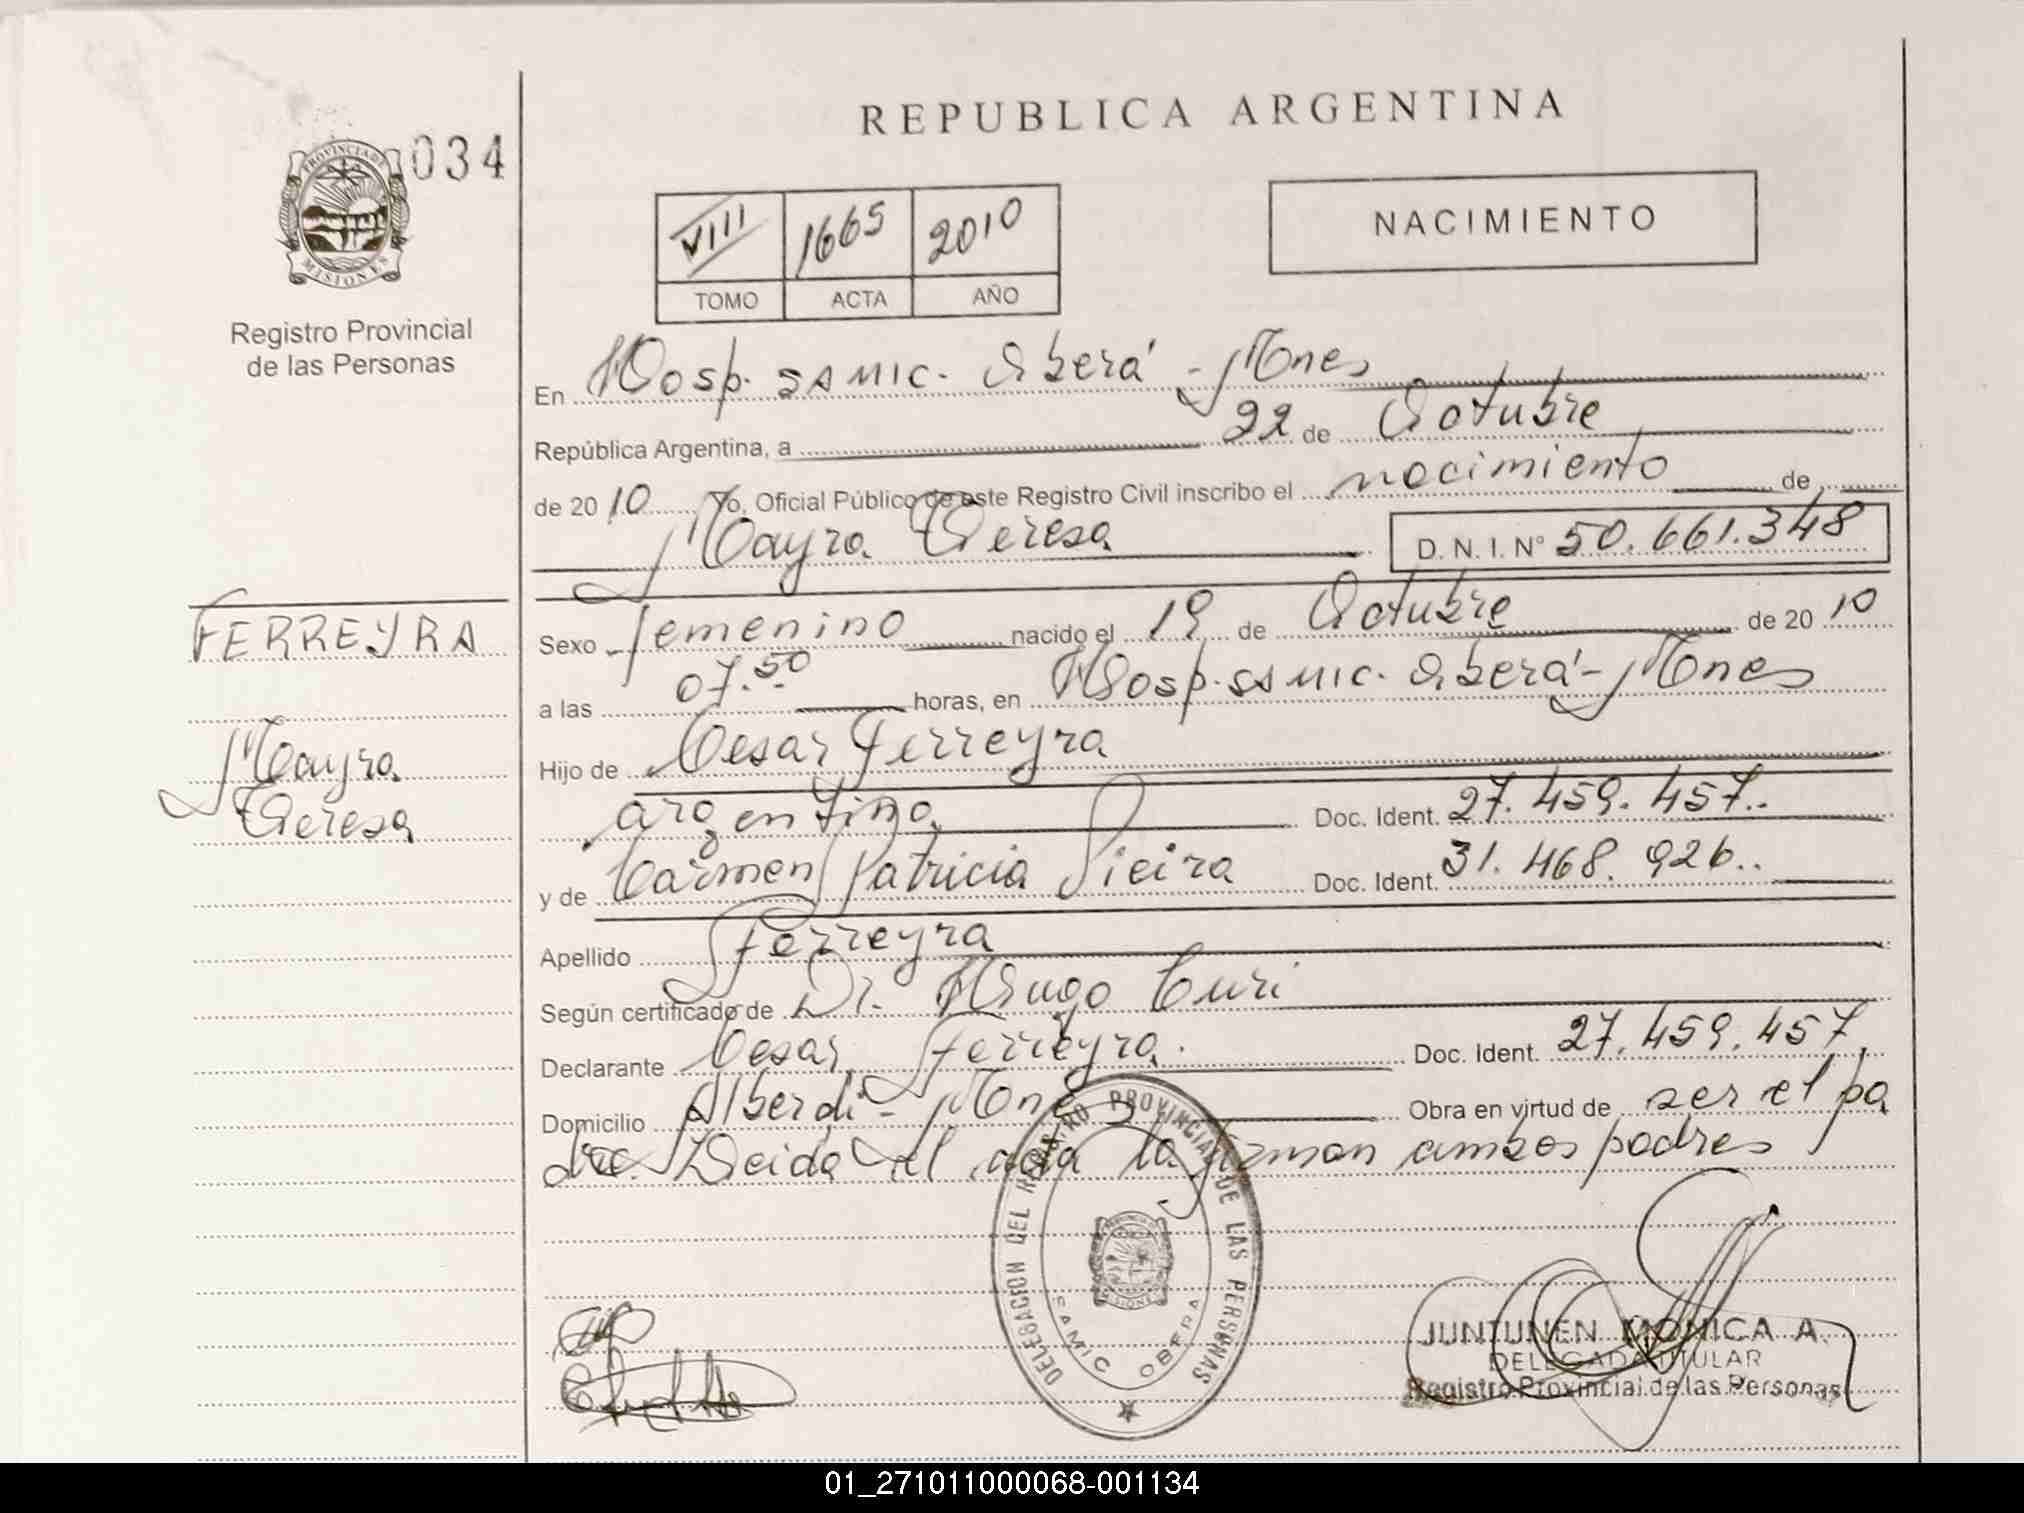 REPUBLICA ARGENTINA
PROVINCIA DE
MISIONES
034
Registro Provincial
de las Personas
VIII 1665 2010
TOMO ACTA AÑO
NACIMIENTO
En Hosp. SAMIC. Oberá - Mnes
República Argentina, a 22 de Octubre
de 2010 Yo, Oficial Público de este Registro Civil inscribo el nacimiento de
Mayra Teresa D. N. I. N° 50.661.348
FERREYRA
Mayra
Teresa
Sexo femenino nacido el 19 de Octubre de 2010
a las 07.50 horas, en Hosp. SAMIC. Oberá - Mnes
Hijo de Cesar Ferreyra
argentino Doc. Ident. 27.459.457..
y de Carmen Patricia Vieira Doc. Ident. 31.468.926..
Apellido Ferreyra
Según certificado de Dr. Hugo Curi
Declarante Cesar Ferreyra. Doc. Ident. 27.459.457
Domicilio Alberdi - Mnes Obra en virtud de ser el pa
dre. Leida el acta la firman ambos padres
DELEGACION DEL REGISTRO PROVINCIAL DE LAS PERSONAS
SAMIC OBERA
JUNTUNEN MONICA A.
DELEGADA TITULAR
Registro Provincial de las Personas
01_271011000068-001134